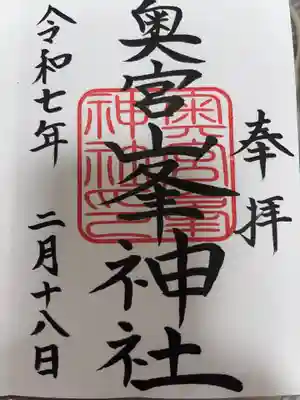 奉拝
奥宮峯神社
奥宮峯
神社印
令和七年 二月十八日